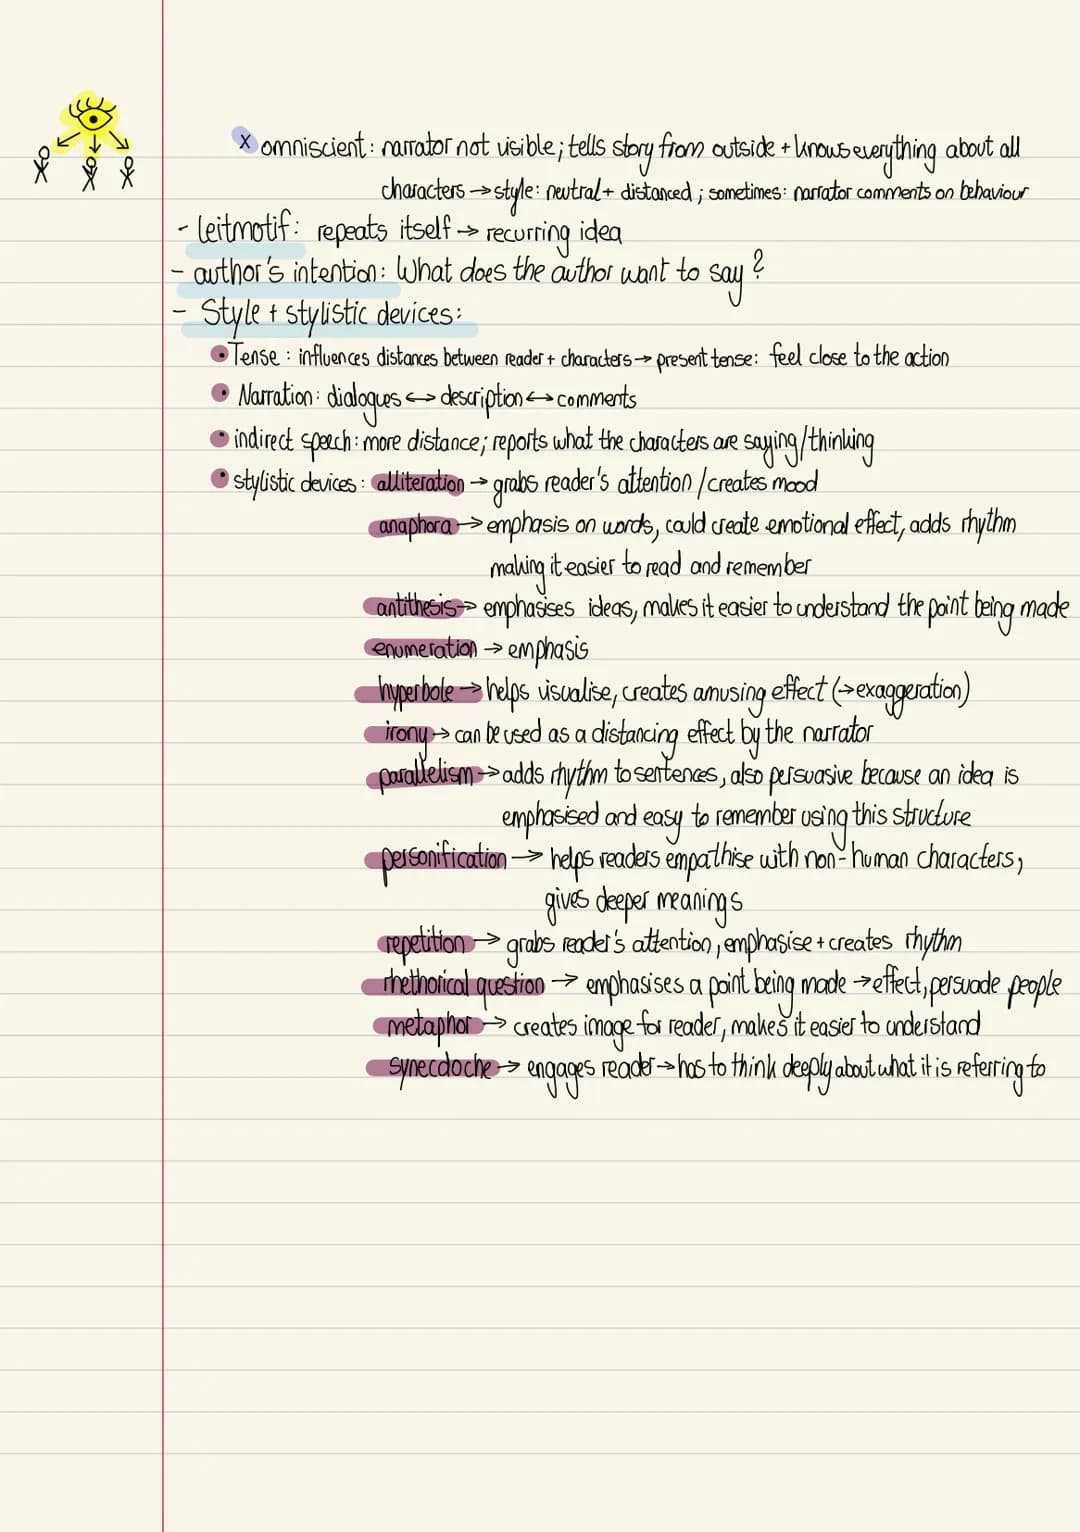 x omniscient: narrator not visible; tells story from outside + knows everything about all
characters → style: neutral + distanced; sometimes: narrator comments on behaviour
- leitmotif: repeats itself → recurring idea
- author's intention: What does the author want to say?
- Style + stylistic devices:
• Tense: influences distances between reader + characters → present tense: feel close to the action
• Narration: dialogues ↔ description ↔ comments
• indirect speech: more distance; reports what the characters are saying/thinking
• stylistic devices: alliteration → grabs reader's attention / creates mood
anaphora → emphasis on words, could create emotional effect, adds rhythm
making it easier to read and remember
antithesis → emphasises ideas, makes it easier to understand the point being made
enumeration → emphasis
hyperbole → helps visualise, creates amusing effect (→ exaggeration)
irony → can be used as a distancing effect by the narrator
parallelism → adds rhythm to sentences, also persuasive because an idea is
emphasised and easy to remember using this structure
personification → helps readers empathise with non-human characters,
gives deeper meanings
repetition → grabs reader's attention, emphasise + creates rhythm
rhethorical question → emphasises a point being made → effect, persuade people
metaphor → creates image for reader, makes it easier to understand
synecdoche → engages reader → has to think deeply about what it is referring to